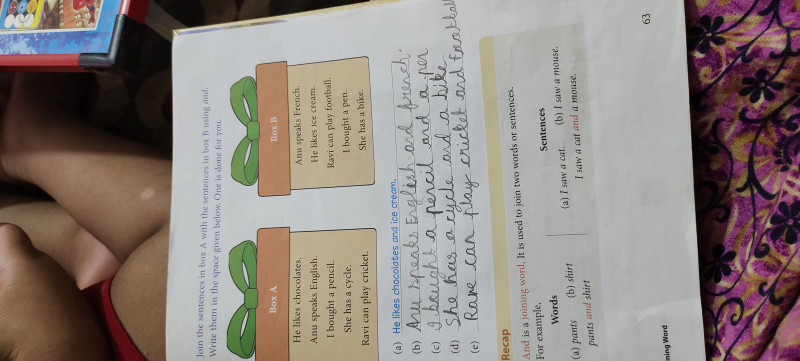 Join the sentences in box A with the sentences in box B using and.
Write them in the space given below. One is done for you.
Box A
He likes chocolates.
Anu speaks English.
I bought a pencil.
She has a cycle.
Ravi can play cricket.
Box B
Anu speaks French.
He likes ice cream.
Ravi can play football.
I bought a pen.
She has a bike.
(a) He likes chocolates and ice cream.
(b) Anu speaks English and french.
(c) I bought a pencil and a pen
(d) She has a cycle and a bike
(e) Rave can play cricket and Football
Recap
And is a joining word. It is used to join two words or sentences.
For example,
Words
(a) pants (b) shirt
pants and shirt
Sentences
(a) I saw a cat. (b) I saw a mouse.
I saw a cat and a mouse.
ming Word
63